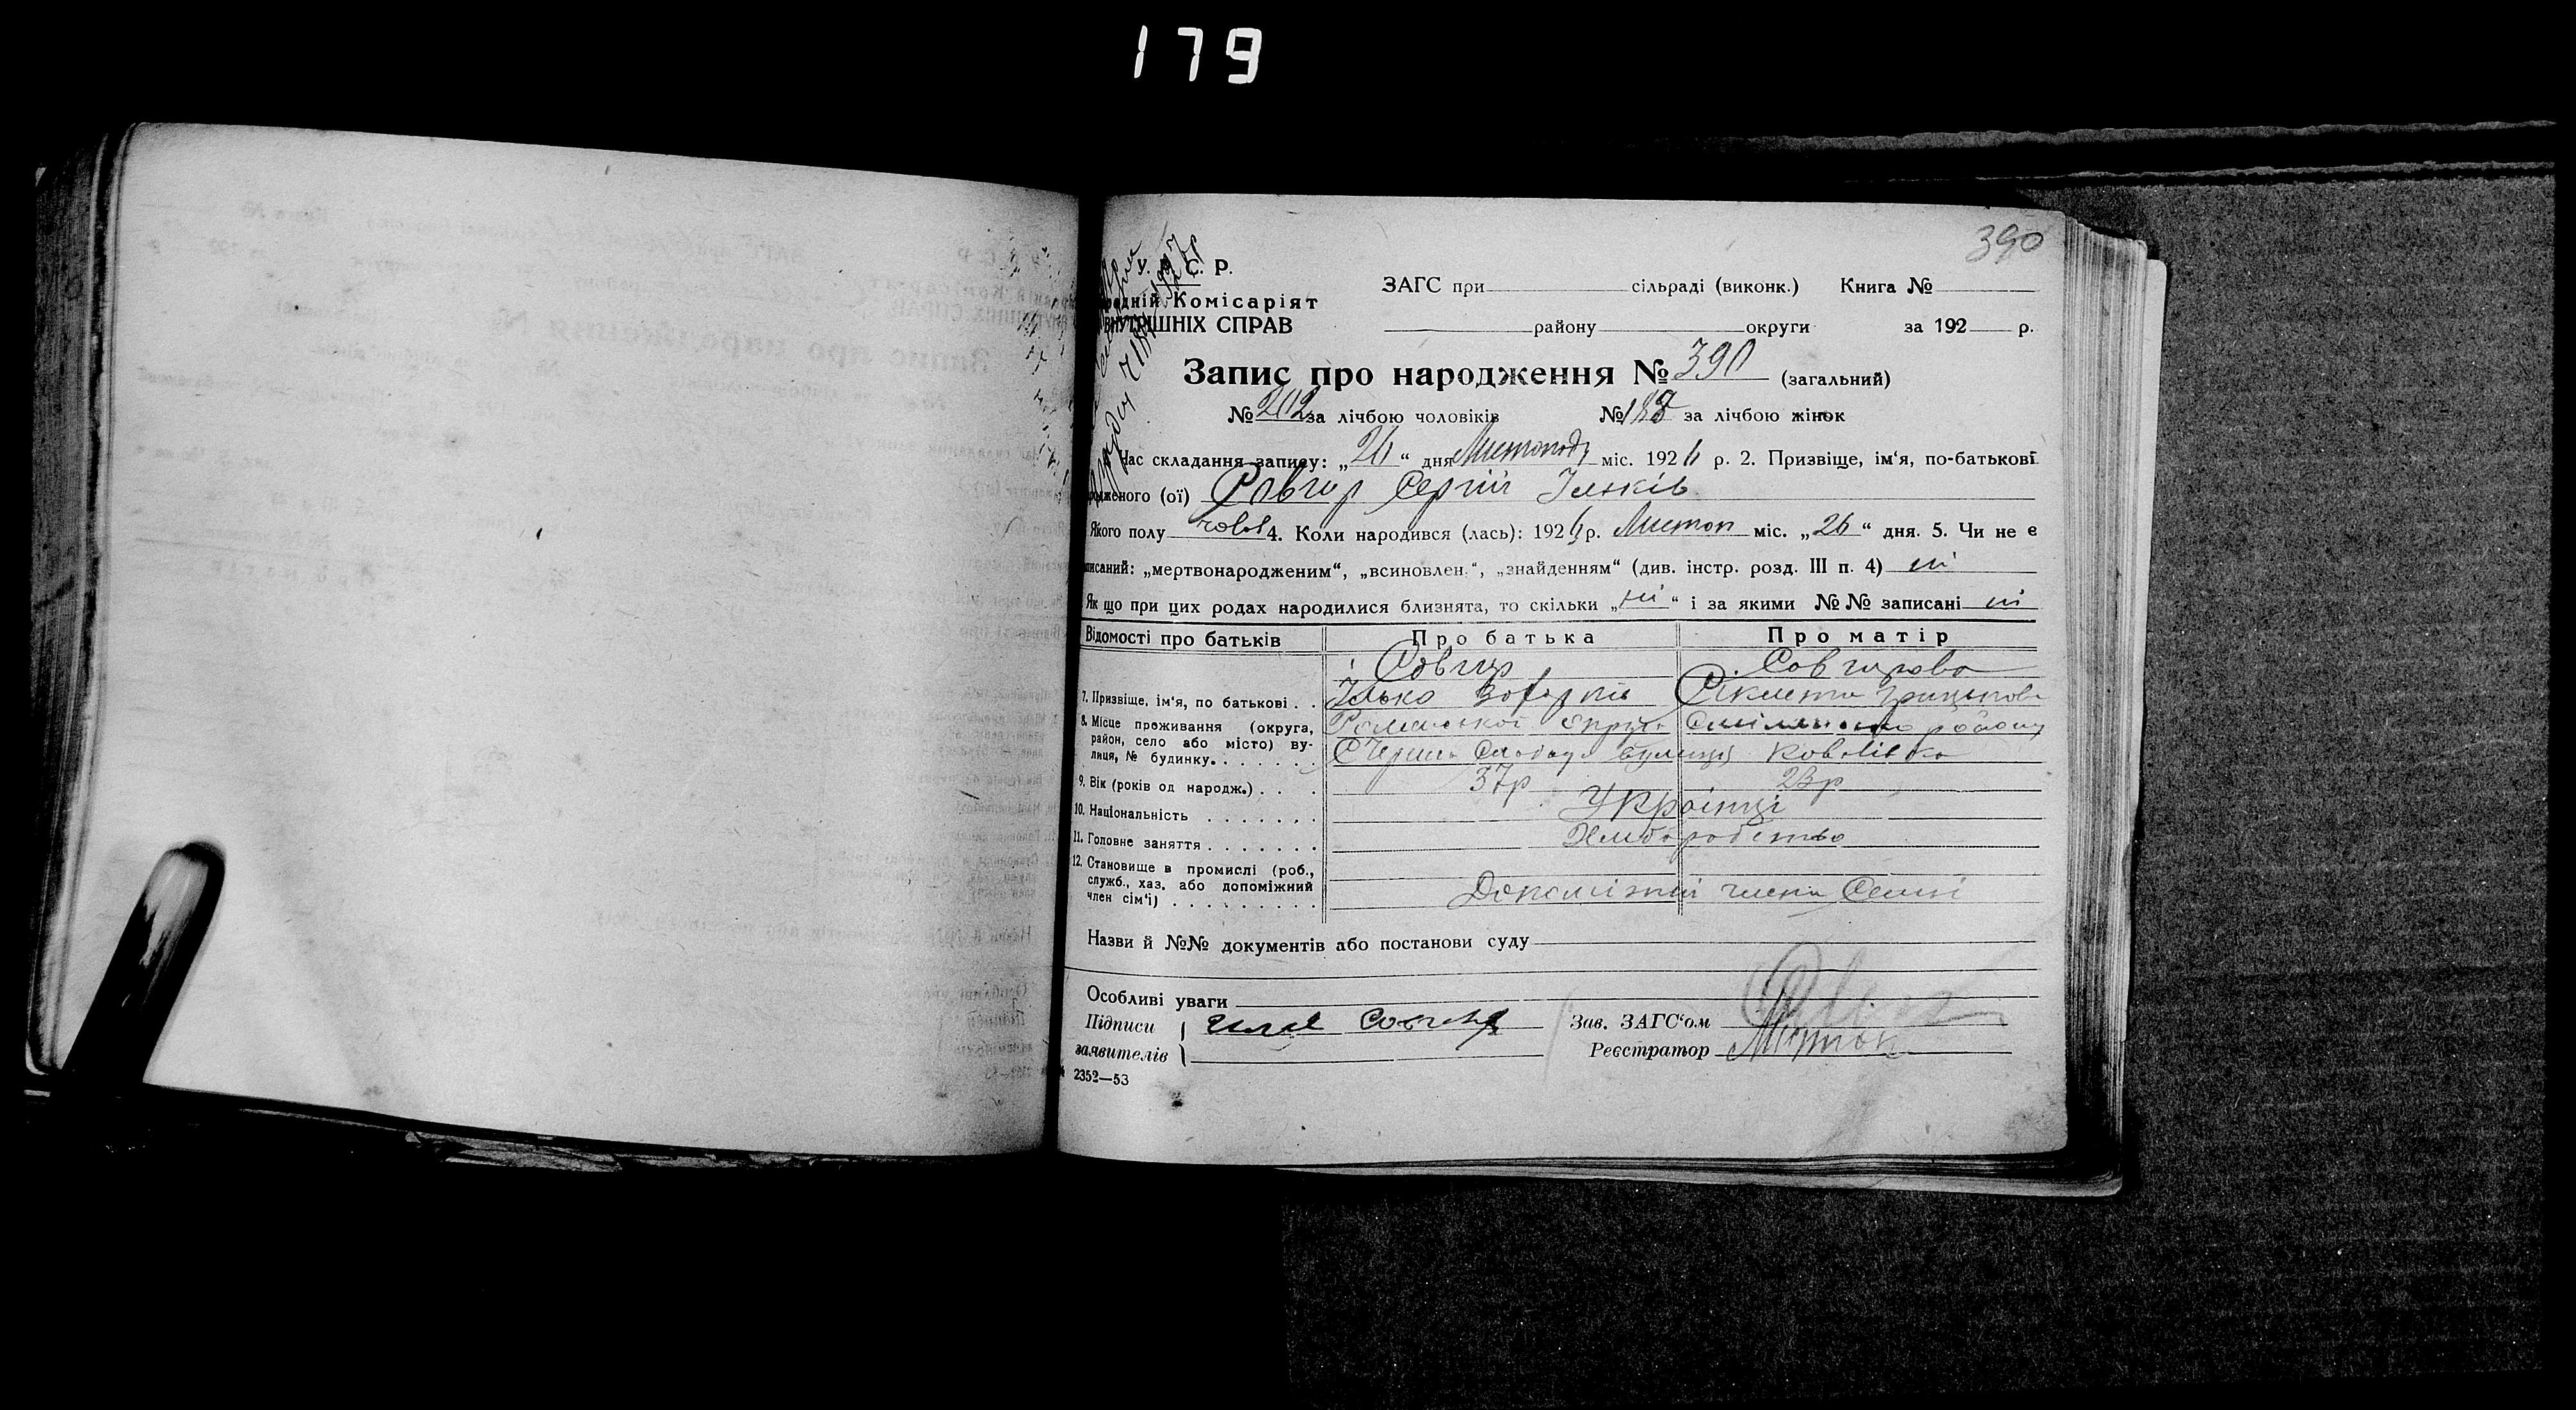 179
390
У. С. Р.
Комісаріят
ВНУТРІШНІХ СПРАВ
ЗАГС при сільраді (виконк.) Книга №
району округи за 192 р.
Запис про народження № 390 (загальний)
№ 202 за лічбою чоловіків № 188 за лічбою жінок
Час складання запису: „26“ дня Листопода міс. 1926 р. 2. Призвіще, ім‘я, по-батькові
родженого (ої) Совгир Сергій Ільків
Якого полу чолов 4. Коли народився (лась): 1926 р. Листоп міс. „26“ дня. 5. Чи не є
писаний: „мертвонародженим“, „всиновлен.“, „знайденням“ (див. інстр. розд. III п. 4) ні
Як що при цих родах народилися близнята, то скільки „ні“ і за якими №№ записані ні
Відомості про батьків Про батька Про матір
Совгир Совгирова
7. Призвіще, ім‘я, по батькові . . Ілько
8. Місце проживання (округа, район, село або місто) вулиця, № будинку. Роменської округи Смілянського району
Слобода вулиця Ковалівка
9. Вік (років од народж.) . . . 37р 23р
10. Національність . . . . . . . Українці
11. Головне заняття . . . . . . . Хліборобство
12. Становище в промислі (роб.,
служб., хаз. або допоміжний
член сім‘ї) . . . . . . . . . Допоміжні члени Семьї
Назви й №№ документів або постанови суду
Особливі уваги
Підписи
заявителів
Зав. ЗАГС‘ом
Реєстратор
2352—53